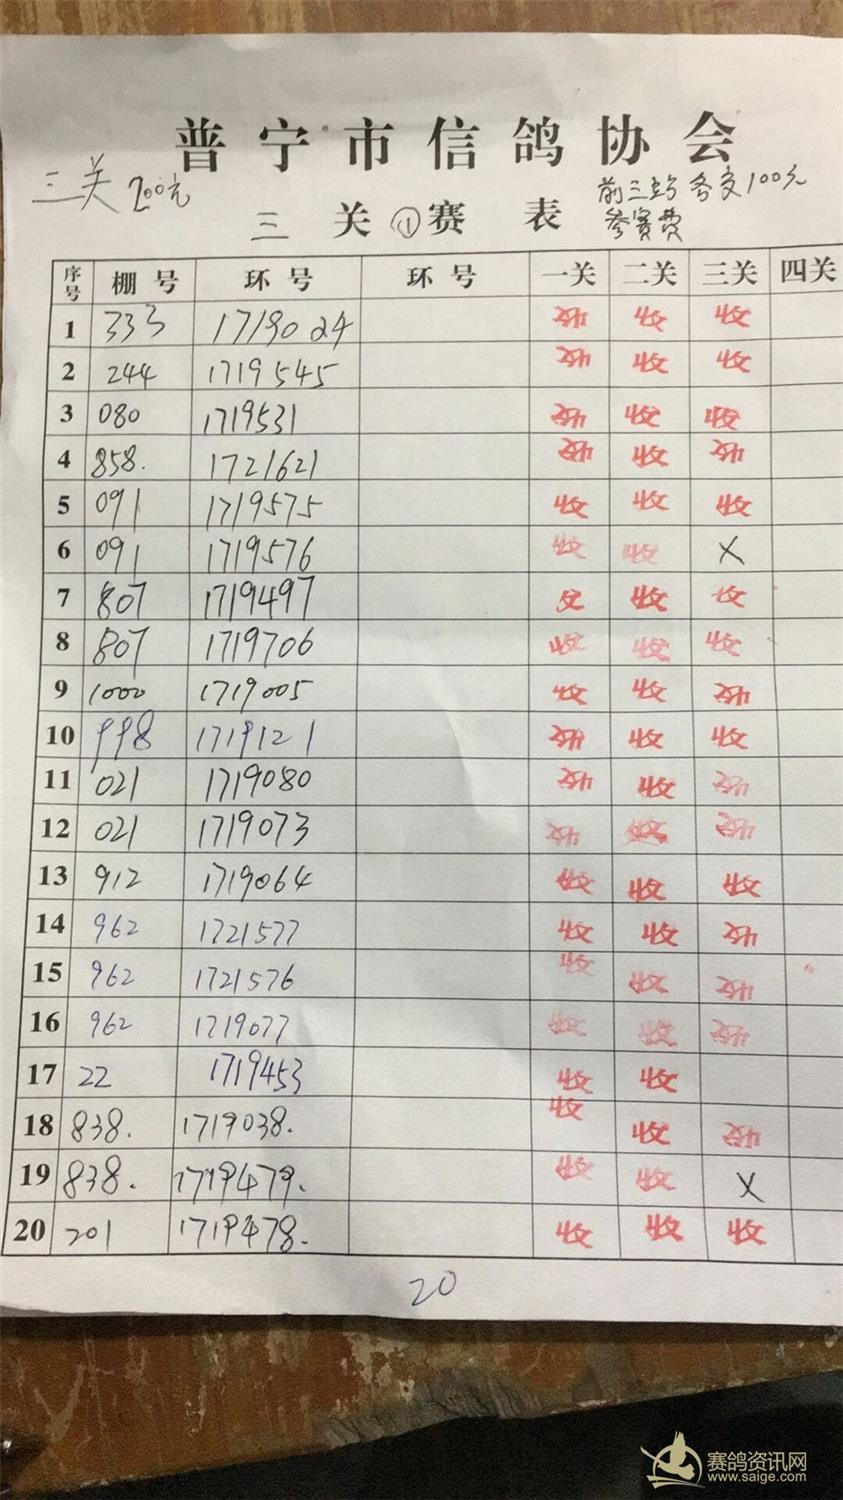 普宁市信鸽协会
三关 200元
前三名 各交100元
参赛费
三关①赛表
序号 棚号 环号 环号 一关 二关 三关 四关
1 333 1719024 收 收 收
2 244 1719545 收 收 收
3 080 1719531 收 收 收
4 858. 1721621 收 收 收
5 091 1719575 收 收 收
6 091 1719576 收 收 X
7 807 1719497 收 收 收
8 807 1719706 收 收 收
9 1000 1719005 收 收 收
10 998 1719121 收 收 收
11 021 1719080 收 收 收
12 021 1719073 收 收 收
13 912 1719064 收 收 收
14 962 1721577 收 收 收
15 962 1721576 收 收 收
16 962 1719077 收 收 收
17 22 1719453 收 收
18 838. 1719038. 收 收 收
19 838. 1719479. 收 收 X
20 201 1719478. 收 收 收
20
赛鸽资讯网
www.saige.com